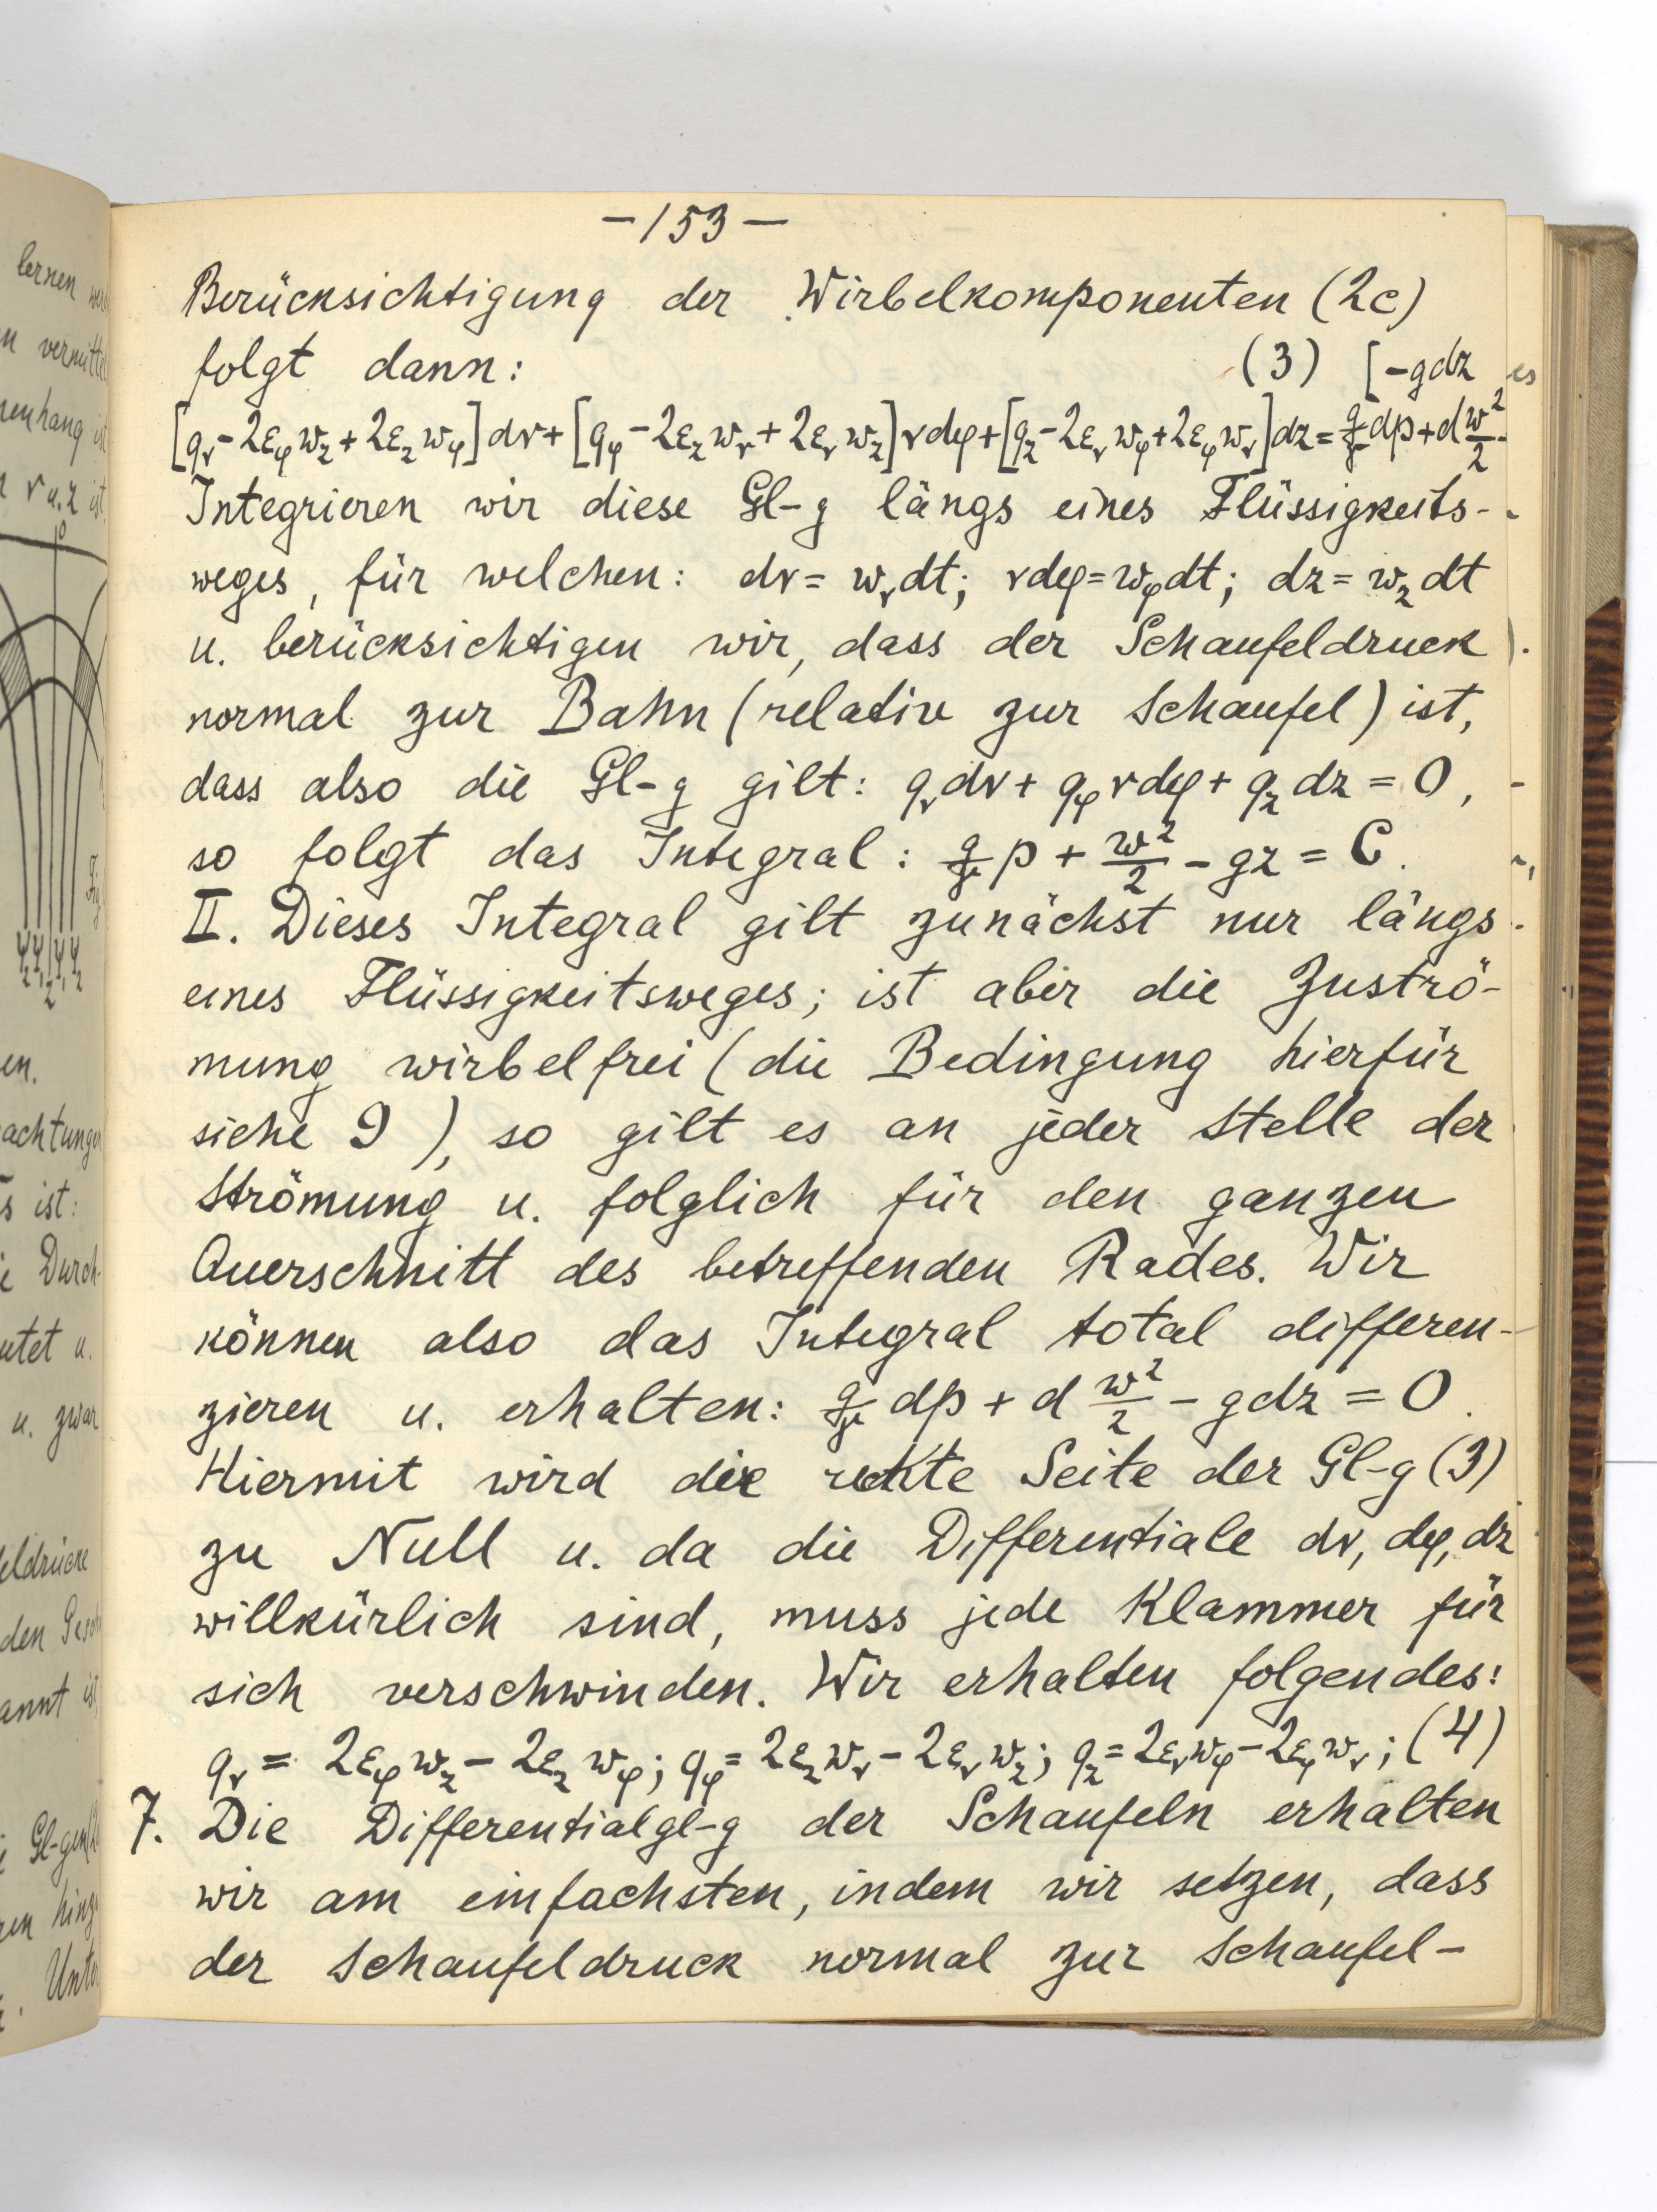 lernen
n vermitte
enhang
r u. z ist
en.
achtungen
s ist:
Durch-
utet u.
u. zwar
eldrücke
den
annt ist
Gl-gen
Unter
- 153 -
Berücksichtigung der Wirbelkomponenten (2c)
folgt dann: (3) [-gdz
[qᵣ-2εᵩw_z+2ε_zwᵩ]dr+[qᵩ-2ε_zwᵣ+2εᵣw_z]rdφ+[q_z-2εᵣwᵩ+2εᵩwᵣ]dz=g/γ dp+d w²/2-
Integrieren wir diese Gl-g längs eines Flüssigkeits-
weges, für welchen: dr=wᵣdt; rdφ=wᵩdt; dz=w_zdt
u. berücksichtigen wir, dass der Schaufeldruck
normal zur Bahn (relativ zur Schaufel) ist,
dass also die Gl-g gilt: qᵣdr+qᵩrdφ+q_zdz=0,
so folgt das Integral: g/γ p + w²/2 - gz = C.
II. Dieses Integral gilt zunächst nur längs
eines Flüssigkeitsweges; ist aber die Zuströ-
mung wirbelfrei (die Bedingung hierfür
siehe 9), so gilt es an jeder Stelle der
Strömung u. folglich für den ganzen
Querschnitt des betreffenden Rades. Wir
können also das Integral total differen-
zieren u. erhalten: g/γ dp + d w²/2 - gdz = 0.
Hiermit wird die rechte Seite der Gl-g (3)
zu Null u. da die Differentiale dr, dφ, dz
willkürlich sind, muss jede Klammer für
sich verschwinden. Wir erhalten folgendes:
qᵣ = 2εᵩw_z - 2ε_zwᵩ; qᵩ = 2ε_zwᵣ - 2εᵣw_z; q_z = 2εᵣwᵩ - 2εᵩwᵣ; (4)
7. Die Differentialgl-g der Schaufeln erhalten
wir am einfachsten, indem wir setzen, dass
der Schaufeldruck normal zur Schaufel-